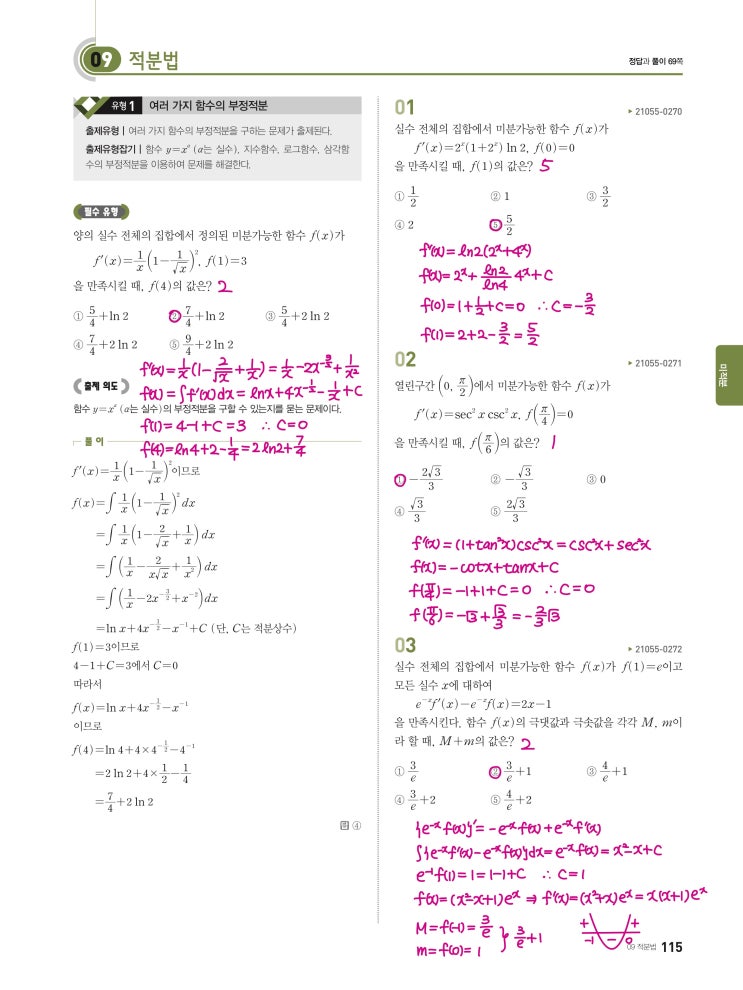 09 적분법
정답과 풀이 69쪽
유형 1 여러 가지 함수의 부정적분
출제유형 | 여러 가지 함수의 부정적분을 구하는 문제가 출제된다.
출제유형잡기 | 함수 y=xᵃ (a는 실수), 지수함수, 로그함수, 삼각함
수의 부정적분을 이용하여 문제를 해결한다.
필수 유형
양의 실수 전체의 집합에서 정의된 미분가능한 함수 f(x)가
f'(x)=1/x(1-1/√x)², f(1)=3
을 만족시킬 때, f(4)의 값은? 2
① 5/4+ln 2 ② 7/4+ln 2 ③ 5/4+2 ln 2
④ 7/4+2 ln 2 ⑤ 9/4+2 ln 2
f'(x)=1/x(1-2/√x+1/x)=1/x-2x^(-3/2)+1/x²
출제 의도
f(x)=∫f'(x)dx=lnx+4x^(-1/2)-1/x+C
함수 y=xᵃ (a는 실수)의 부정적분을 구할 수 있는지를 묻는 문제이다.
f(1)=4-1+C=3 ∴ C=0
풀이
f(4)=ln4+2-1/4=2ln2+7/4
f'(x)=1/x(1-1/√x)²이므로
f(x)=∫1/x(1-1/√x)²dx
=∫1/x(1-2/√x+1/x)dx
=∫(1/x-2/(x√x)+1/x²)dx
=∫(1/x-2x^(-3/2)+x⁻²)dx
=ln x+4x^(-1/2)-x⁻¹+C (단, C는 적분상수)
f(1)=3이므로
4-1+C=3에서 C=0
따라서
f(x)=ln x+4x^(-1/2)-x⁻¹
이므로
f(4)=ln 4+4×4^(-1/2)-4⁻¹
=2 ln 2+4×1/2-1/4
=7/4+2 ln 2
답 ④
01
▶ 21055-0270
실수 전체의 집합에서 미분가능한 함수 f(x)가
f'(x)=2ˣ(1+2ˣ) ln 2, f(0)=0
을 만족시킬 때, f(1)의 값은? 5
① 1/2 ② 1 ③ 3/2
④ 2 ⑤ 5/2
f'(x)=ln2(2ˣ+4ˣ)
f(x)=2ˣ+ln2/ln4 4ˣ+C
f(0)=1+1/2+C=0 ∴ C=-3/2
f(1)=2+2-3/2=5/2
02
▶ 21055-0271
열린구간 (0, π/2)에서 미분가능한 함수 f(x)가
f'(x)=sec² x csc² x, f(π/4)=0
을 만족시킬 때, f(π/6)의 값은? 1
① -2√3/3 ② -√3/3 ③ 0
④ √3/3 ⑤ 2√3/3
f'(x)=(1+tan²x)csc²x=csc²x+sec²x
f(x)=-cotx+tanx+C
f(π/4)=-1+1+C=0 ∴ C=0
f(π/6)=-√3+√3/3=-2/3√3
03
▶ 21055-0272
실수 전체의 집합에서 미분가능한 함수 f(x)가 f(1)=e이고
모든 실수 x에 대하여
e⁻ˣf'(x)-e⁻ˣf(x)=2x-1
을 만족시킨다. 함수 f(x)의 극댓값과 극솟값을 각각 M, m이
라 할 때, M+m의 값은? 2
① 3/e ② 3/e+1 ③ 4/e+1
④ 3/e+2 ⑤ 4/e+2
{e⁻ˣf(x)}'=-e⁻ˣf(x)+e⁻ˣf'(x)
∫{e⁻ˣf'(x)-e⁻ˣf(x)}dx=e⁻ˣf(x)=x²-x+C
e⁻¹f(1)=1=1-1+C ∴ C=1
f(x)=(x²-x+1)eˣ ⇒ f'(x)=(x²+x)eˣ=x(x+1)eˣ
M=f(-1)=3/e
m=f(0)=1
} 3/e+1
+ +
-1 - 0
미적분
09 적분법 115